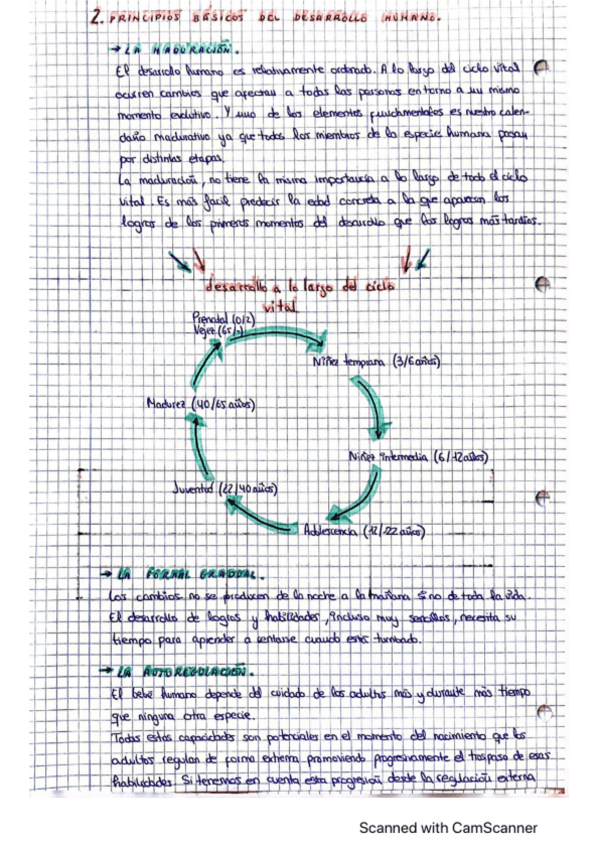 2. PRINCIPIOS BÁSICOS DEL DESARROLLO HUMANO.
→ LA MADURACIÓN.
El desarrollo humano es relativamente ordenado. A lo largo del ciclo vital
ocurren cambios que afectan a todas las personas entorno a un mismo
momento evolutivo. Y uno de los elementos fundamentales es nuestro calen-
dario madurativo ya que todos los miembros de la especie humana pasan
por distintas etapas.
La maduración, no tiene la misma importancia a lo largo de todo el ciclo
vital. Es más facil predecir la edad concreta a la que aparecen los
logros de los primeros momentos del desarrollo que los logros más tardíos.
desarrollo a lo largo del ciclo
vital
Prenatal (0/2)
Vejez (65/
Niñez temprana (3/6 años)
Madurez (40/65 años)
Niñez intermedia (6/12 años)
Juventud (22/40 años)
Adolescencia (12/22 años)
→ LA FORMAL GRADUAL.
Los cambios no se producen de la noche a la mañana sino de toda la vida.
El desarrollo de logros y habilidades, incluso muy sencillos, necesita su
tiempo para aprender a sentarse cuando estes tumbado.
→ LA AUTOREGULACIÓN.
El bebé humano depende del cuidado de los adultos más y durante más tiempo
que ninguna otra especie.
Todas estas capacidades son potenciales en el momento del nacimiento que los
adultos regulan de forma externa promoviendo progresivamente el traspaso de esas
habilidades. Si tenemos en cuenta esta progresión desde la regulación externa
Scanned with CamScanner